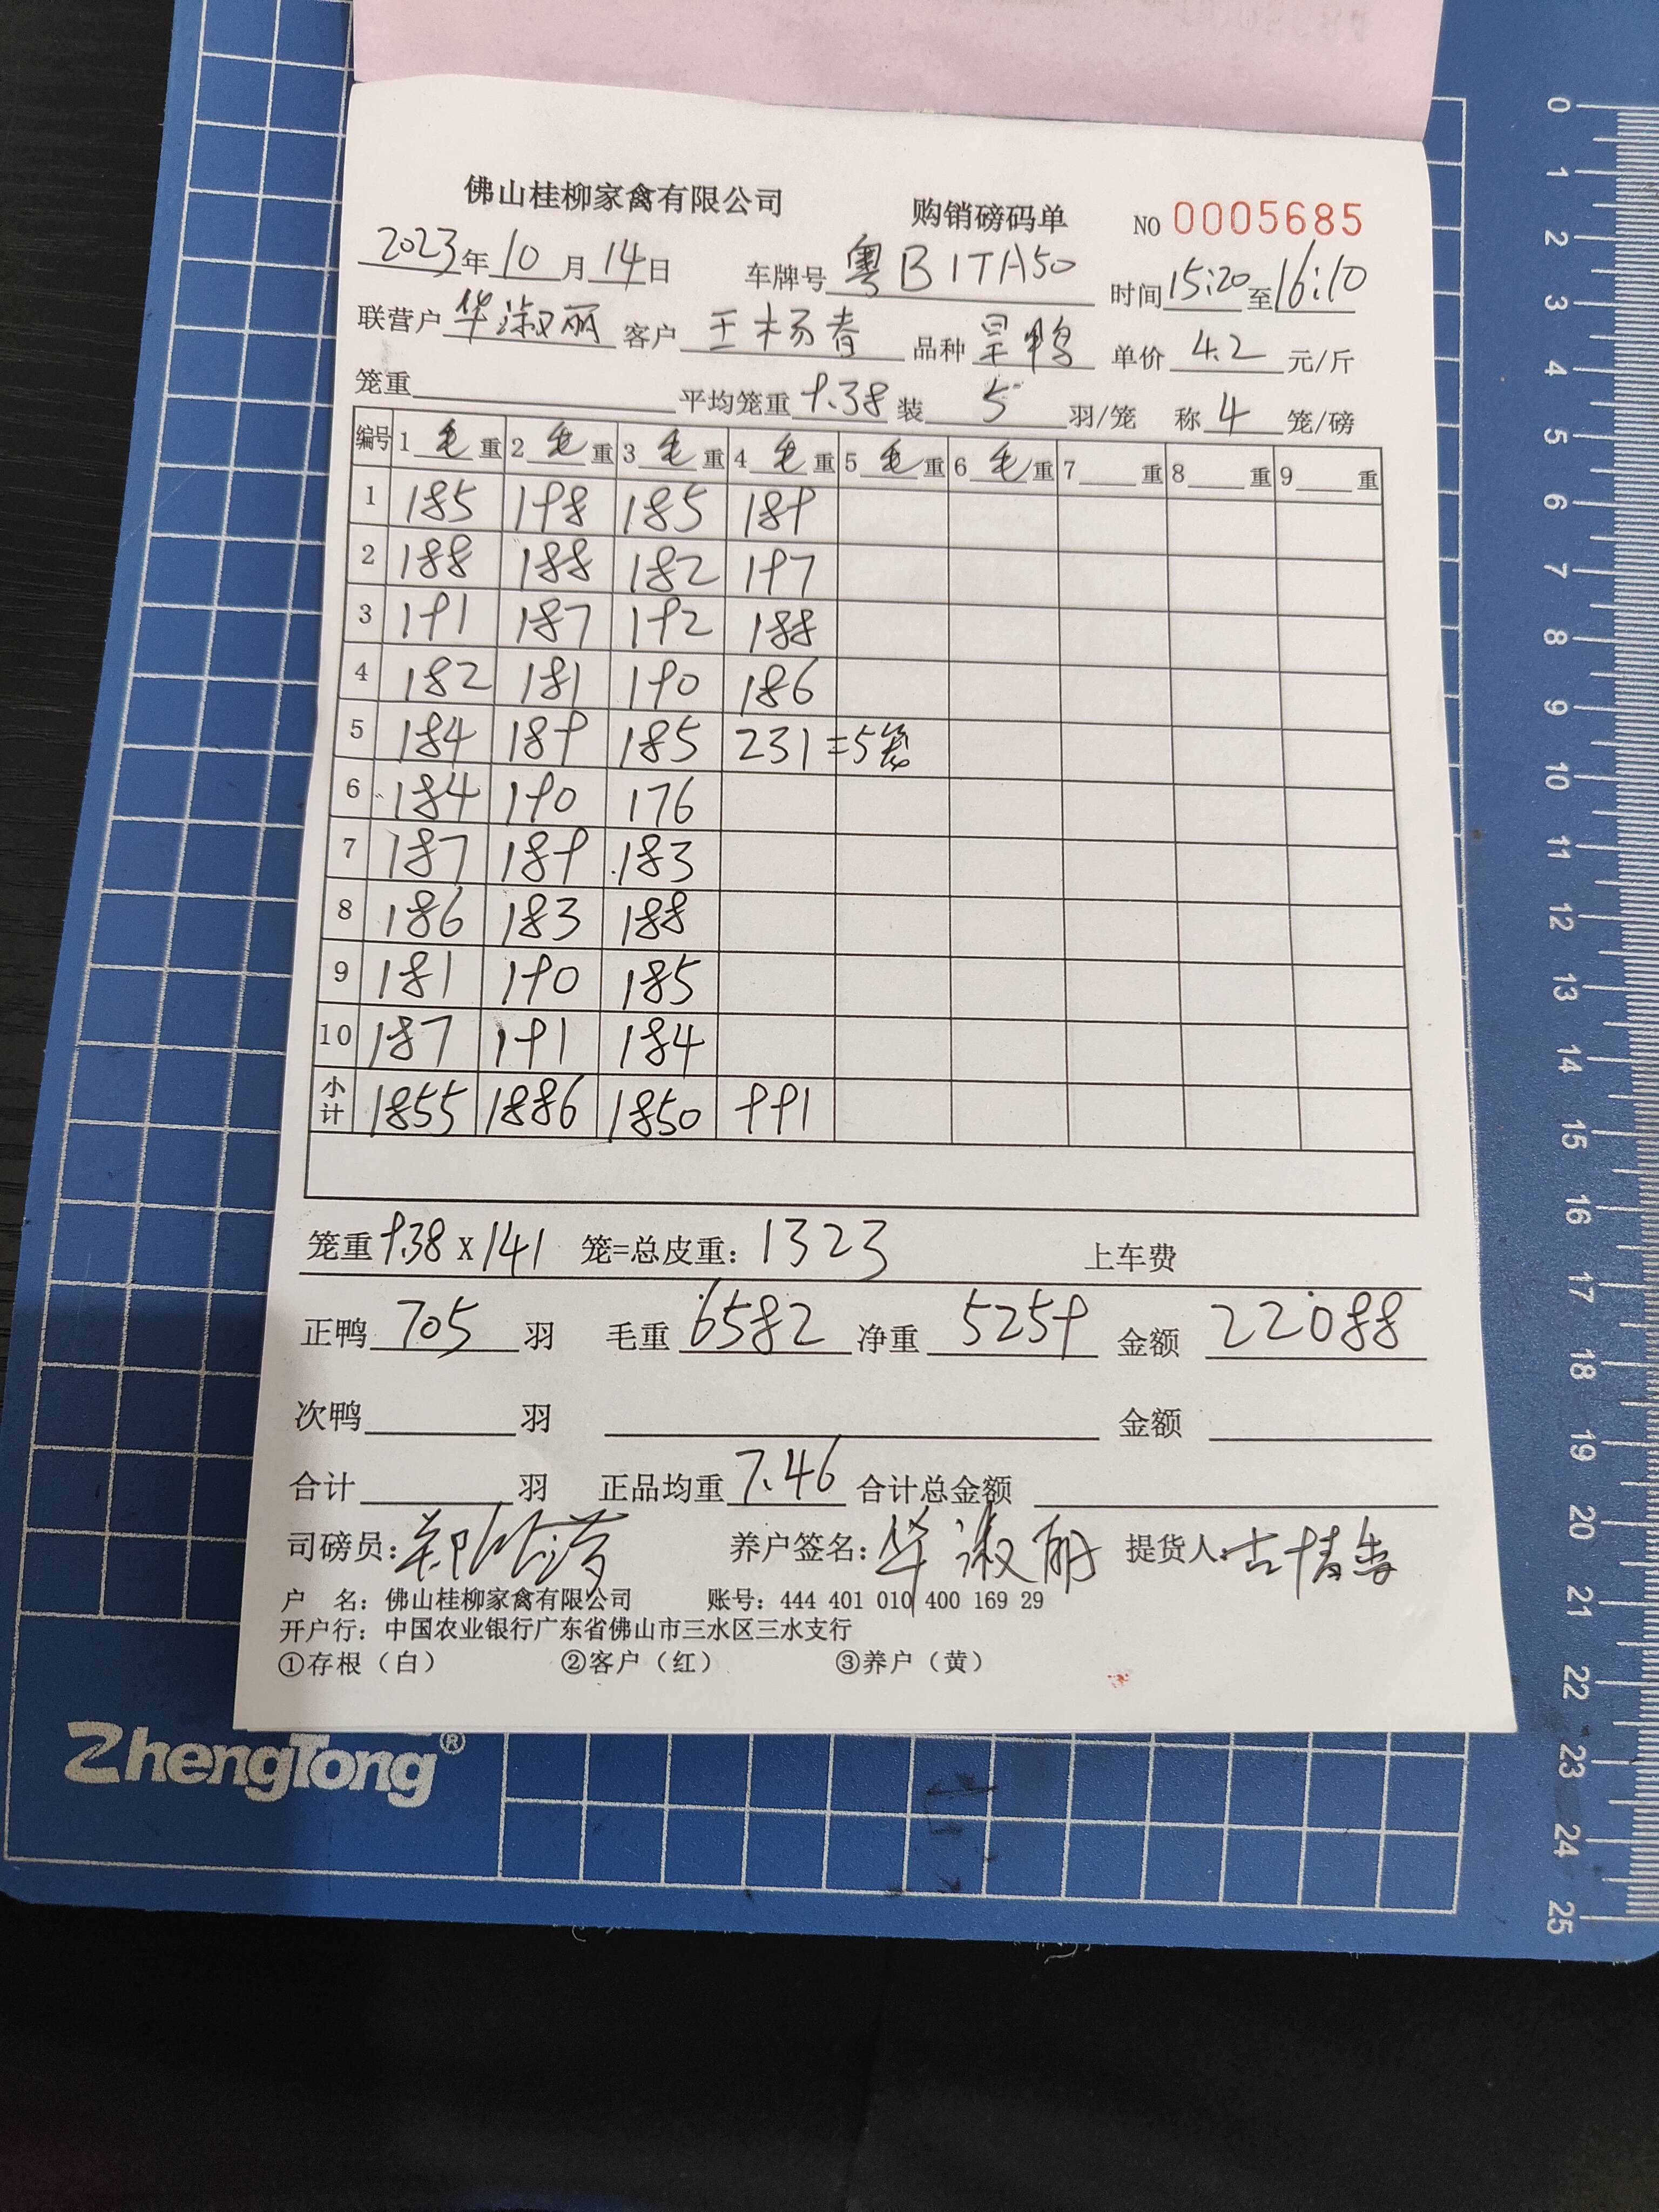 佛山桂柳家禽有限公司 购销磅码单 NO 0005685
2023年10月14日 车牌号 粤B1TA50 时间15:20至16:10
联营户 华淑丽 客户 王杨春 品种 旱鸭 单价 4.2 元/斤
笼重 平均笼重 9.38 装 5 羽/笼 称 4 笼/磅
编号 1 毛 重 2 毛 重 3 毛 重 4 毛 重 5 毛 重 6 毛 重 7 重 8 重 9 重
1 185 198 185 189
2 188 188 182 197
3 191 187 192 188
4 182 181 190 186
5 184 189 185 231=5笼
6 184 190 176
7 187 189 183
8 186 183 188
9 181 190 185
10 187 191 184
小计 1855 1886 1850 991
笼重 9.38 X 141 笼=总皮重: 1323 上车费
正鸭 705 羽 毛重 6582 净重 5259 金额 22088
次鸭 羽 金额
合计 羽 正品均重 7.46 合计总金额
司磅员: 养户签名: 华淑丽 提货人:
户 名: 佛山桂柳家禽有限公司 账号: 444 401 010 400 169 29
开户行: 中国农业银行广东省佛山市三水区三水支行
①存根（白） ②客户（红） ③养户（黄）
ZhengTong®
0
1
2
3
4
5
6
7
8
9
10
11
12
13
14
15
16
17
18
19
20
21
22
23
24
25